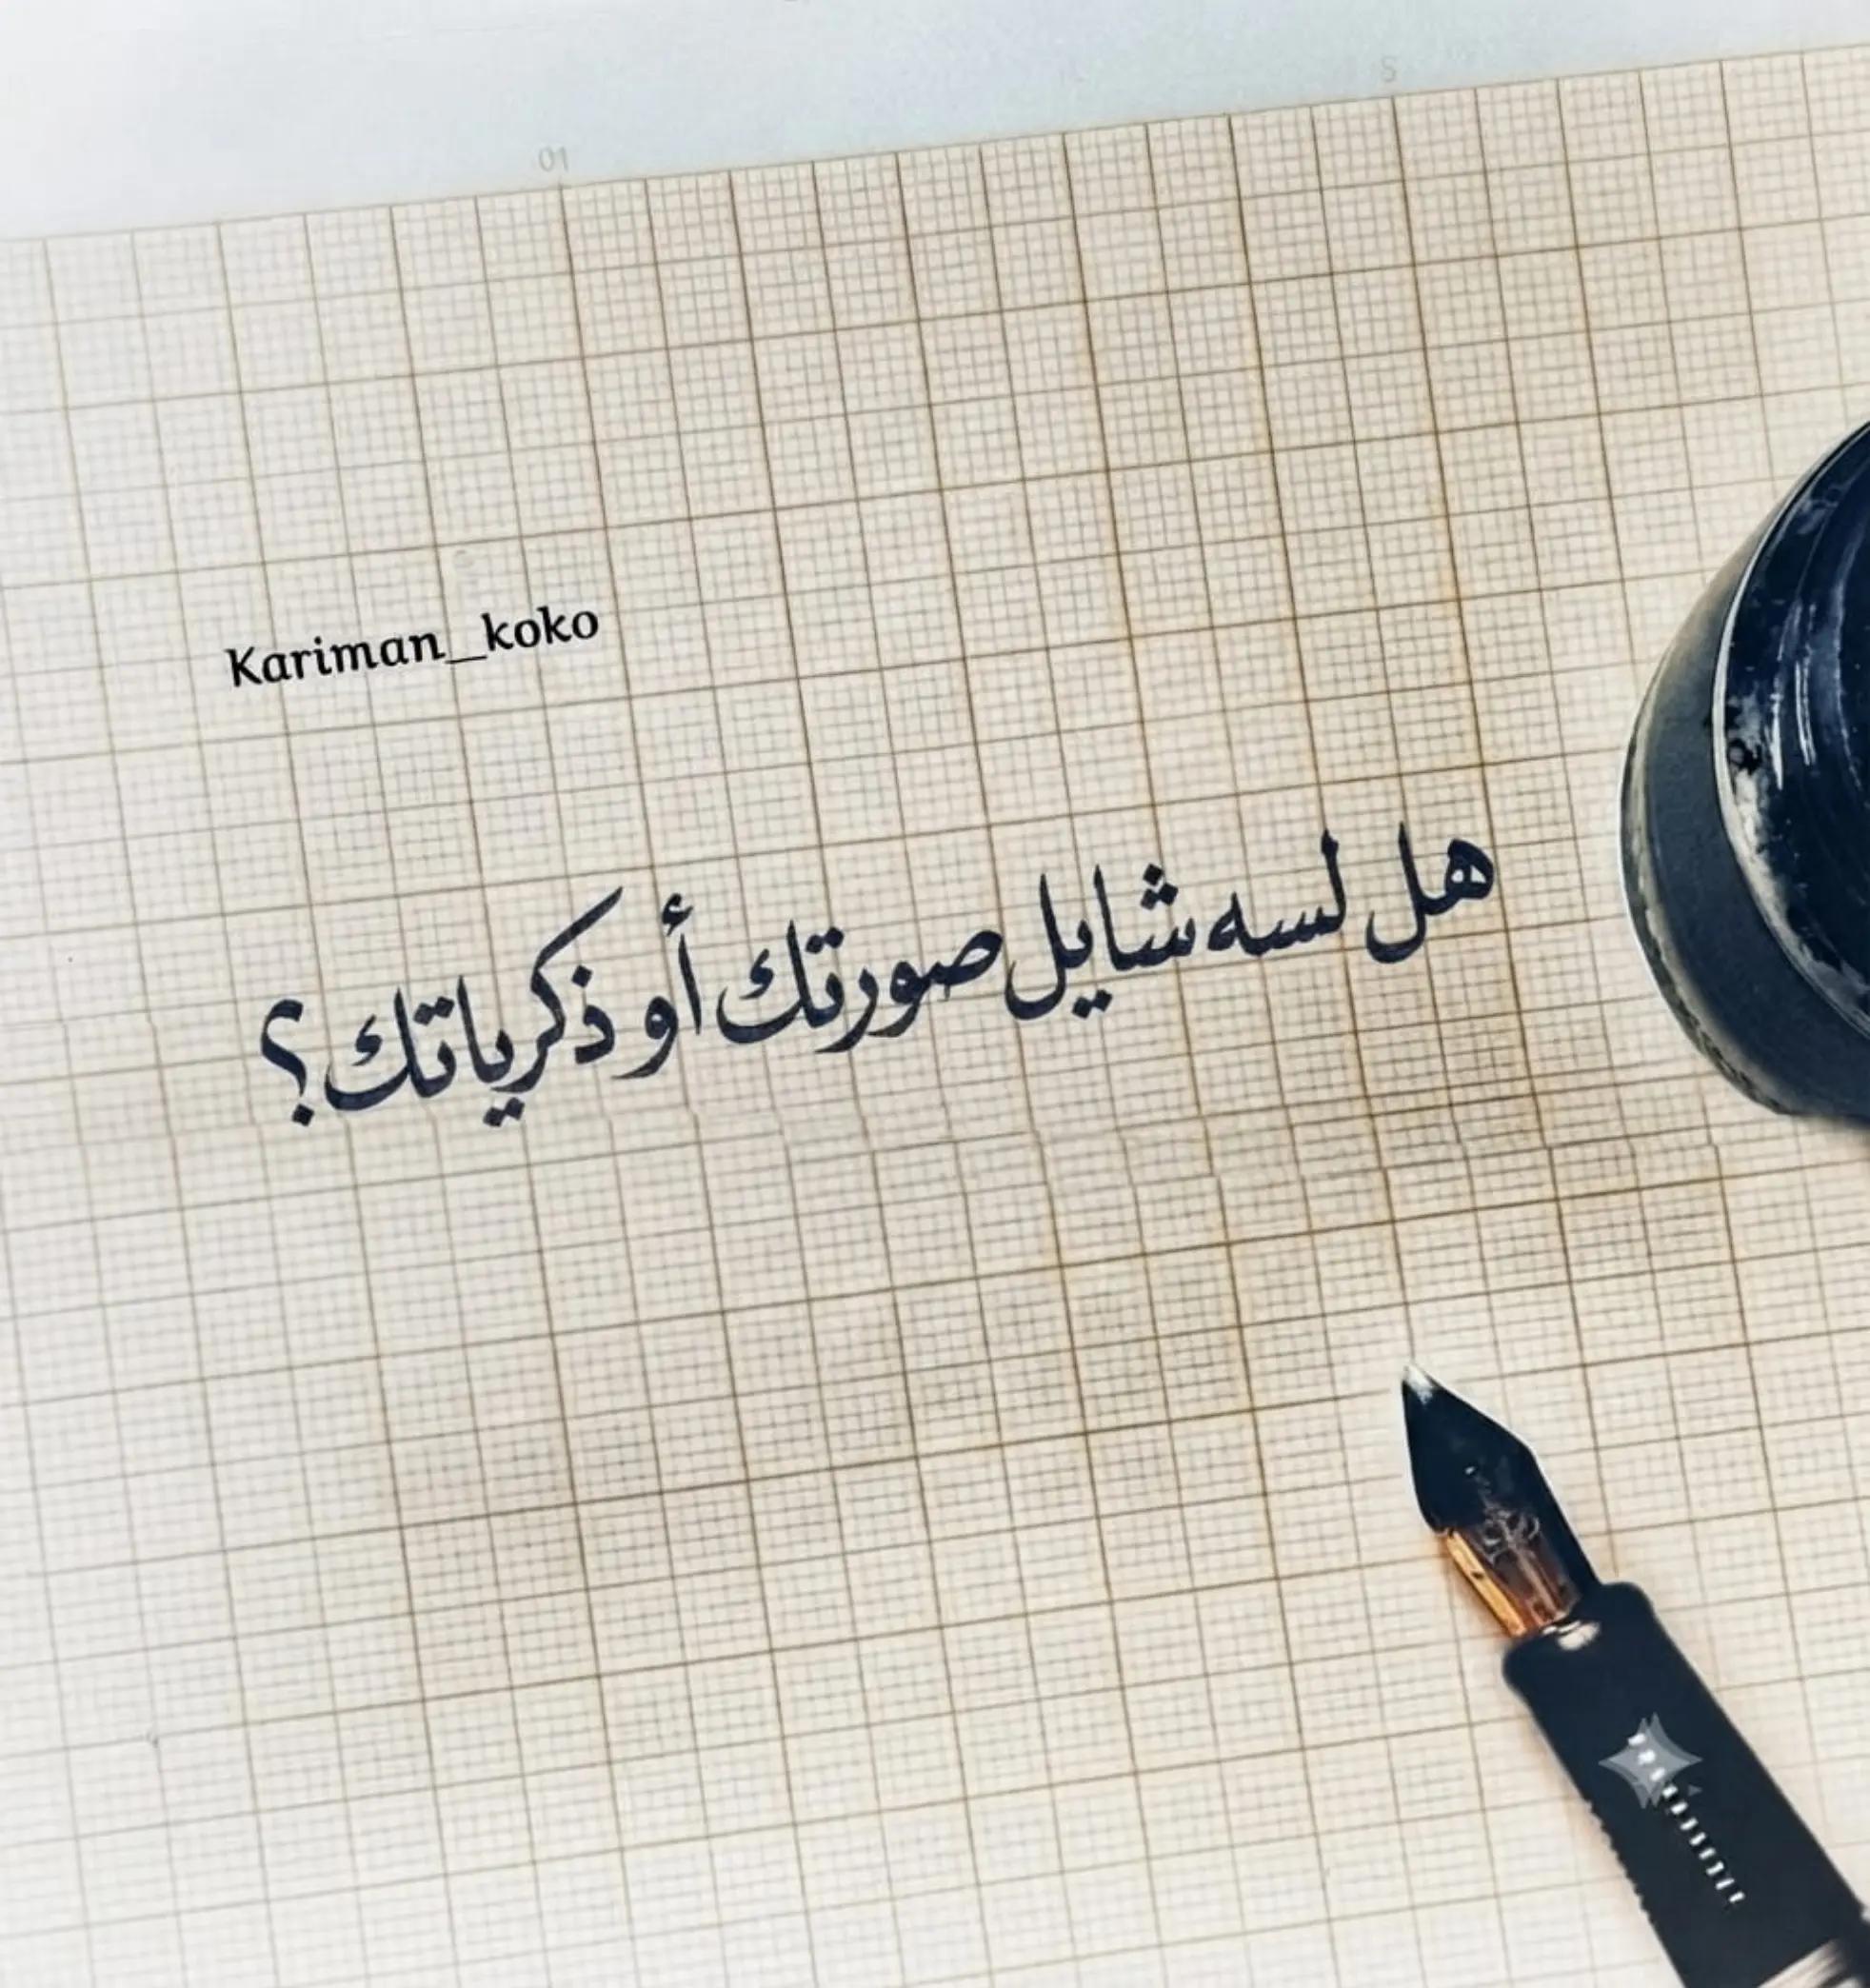 Kariman_koko
هل لسه شايل صورتك أو ذكرياتك؟